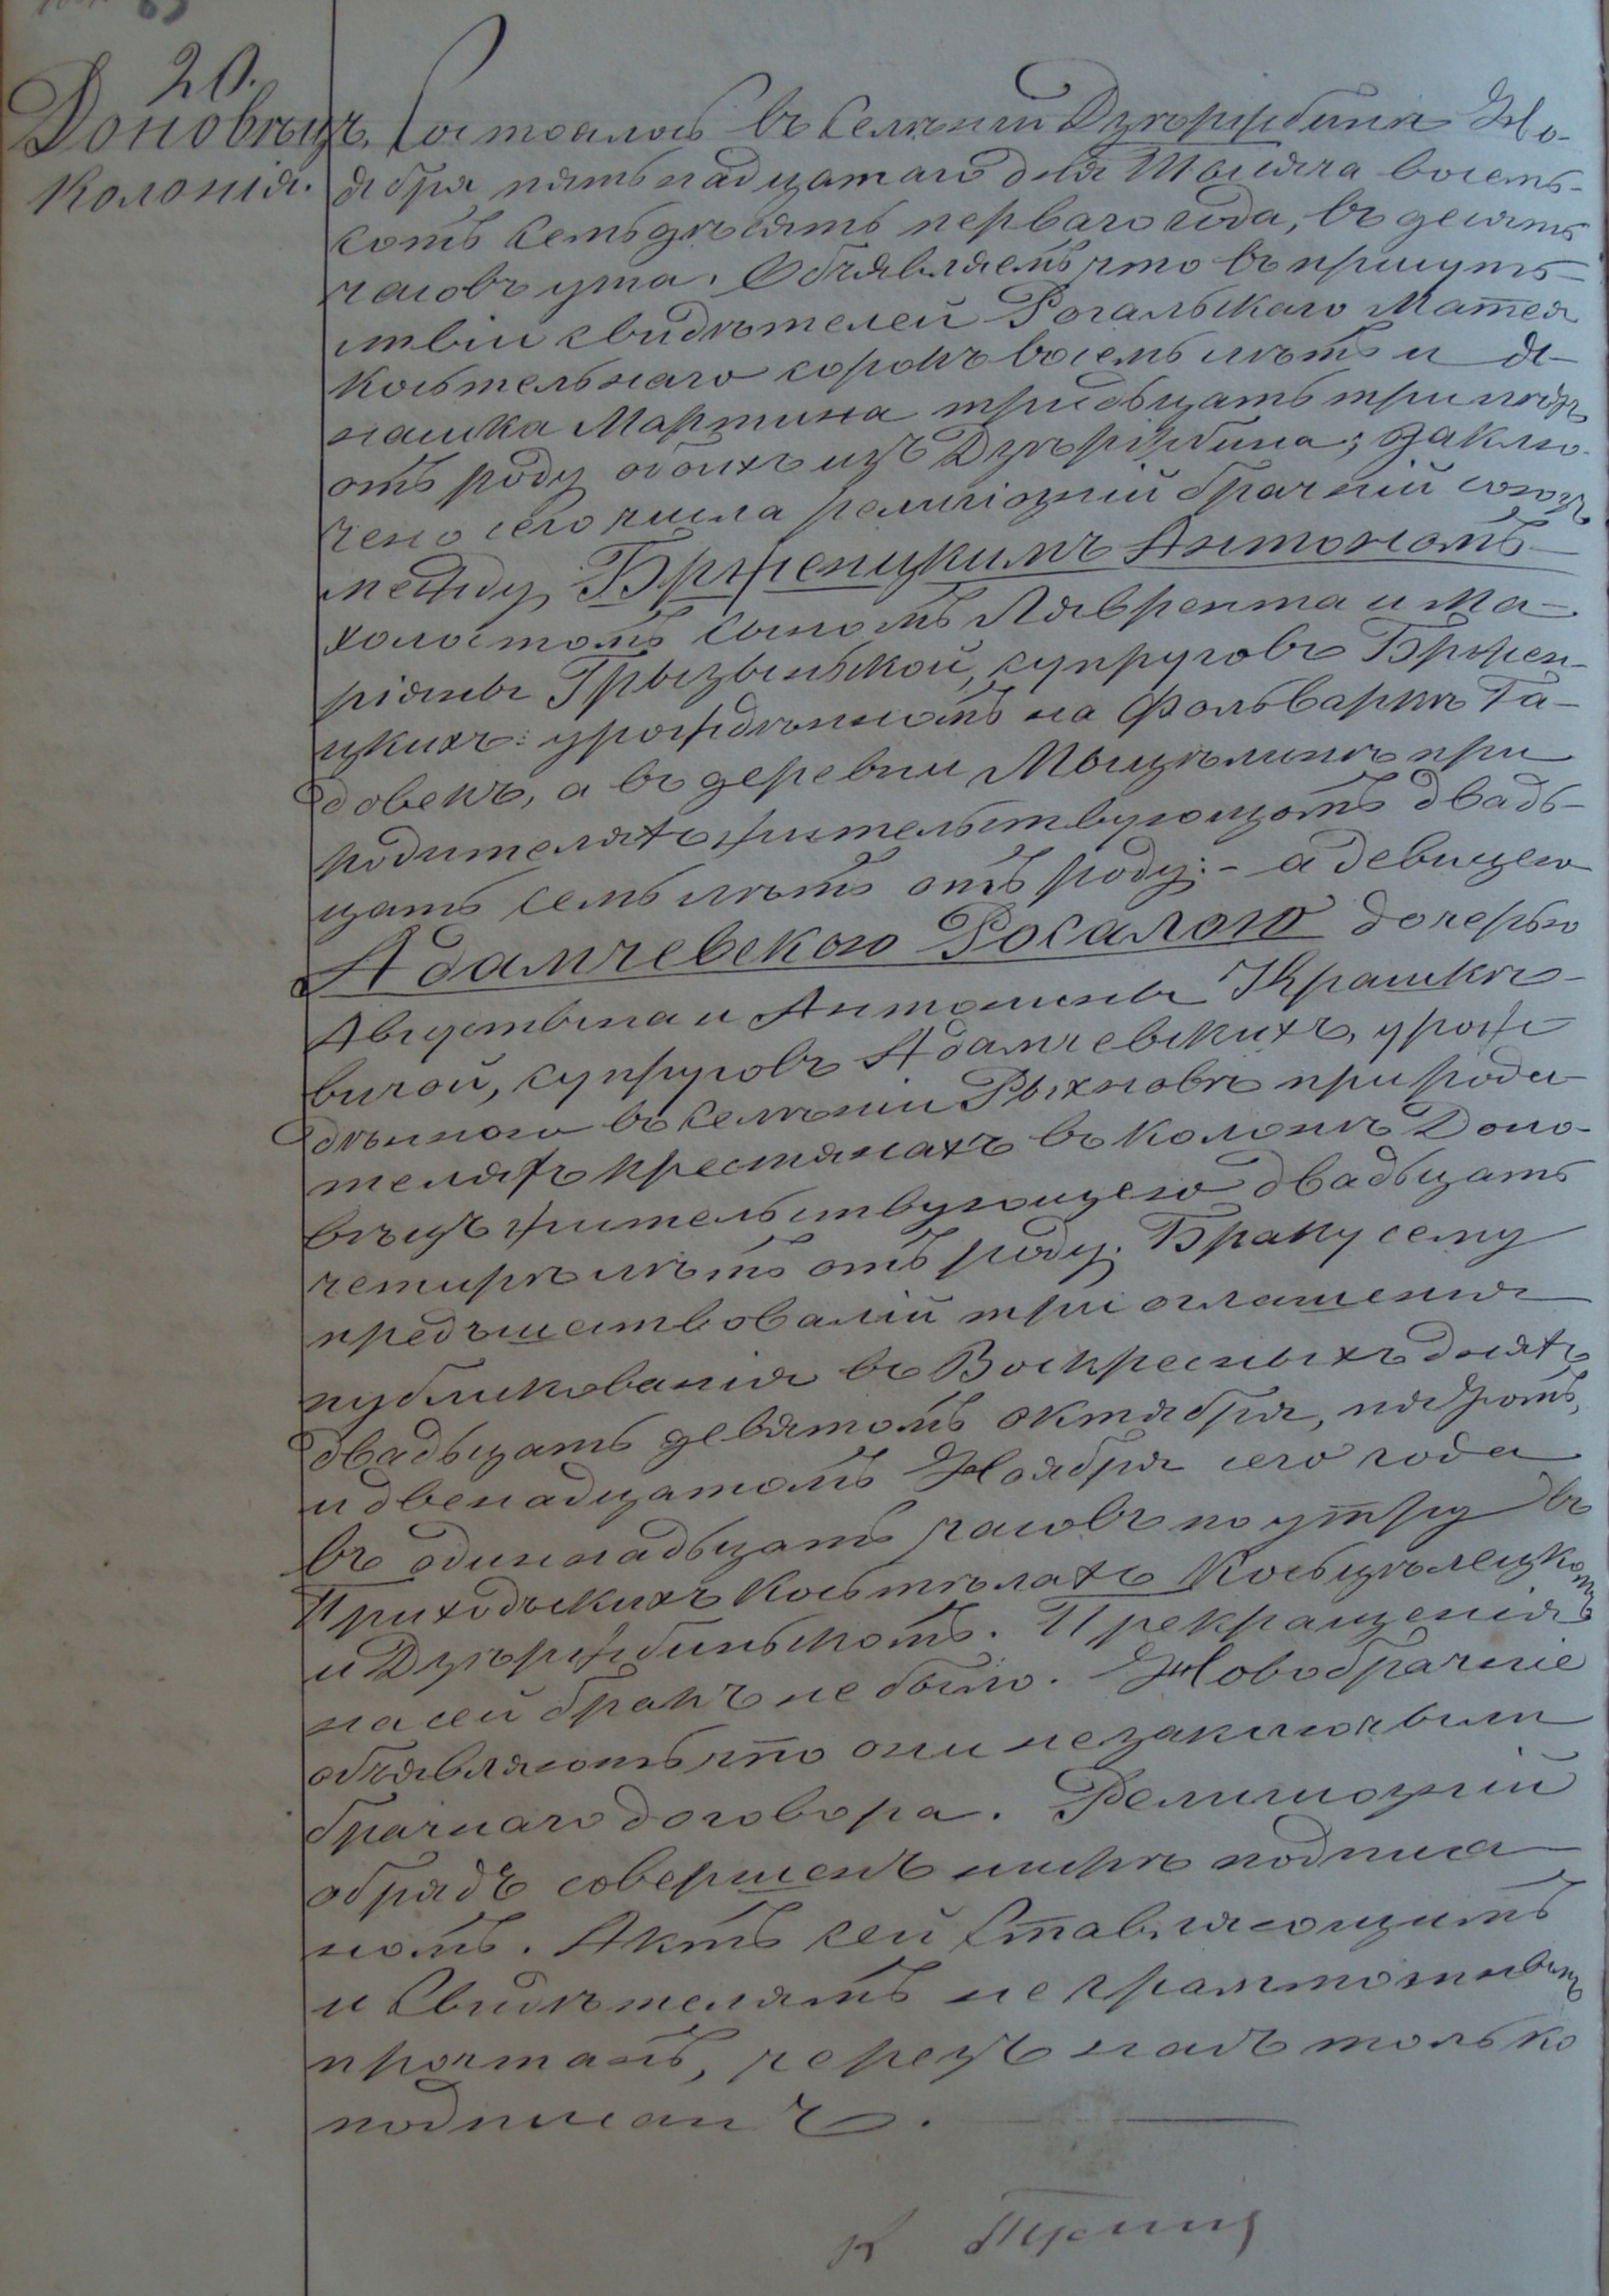 20.
Доновѣцъ
Колонія.
Состоалось въ Селѣніи Дзѣржбинѣ Но-
ября пятьнадцатаго дня Тысяча восемь-
сотъ семьдѣсятъ перваго года, въ десять
часовъ ута. Объявляемъ что въ присуть-
ствіи свидѣтелей Рогальскаго Матея
костельнаго сорокъ восемь лѣтъ и Я-
нашка Мартина тридьцать три лѣтъ
отъ роду обоихъ изъ Дзѣржбина; Заклю-
чено сего числа религіозній брачній союзъ
между Брженицкимъ Антономъ
холостомъ сыномъ Лаврента и Ма-
ріяны Грызыньской, супруговъ Бржен-
ицкихъ: урождѣннымъ на Фольваркѣ Га-
довекъ, а въ деревни Мыцѣлинѣ при
родителяхъ жительствующомъ двадь-
цать семь лѣтъ отъ роду:- а девицею
Адамчевскою Росалою дочерью
Августына и Антонины Крашке-
вичой, супруговъ Адамчевскихъ, урож-
дѣнною въ Селѣніи Рыхновѣ при роди-
теляхъ крестянахъ въ колонѣ Доно-
вѣцъ жительствующею двадьцать
четирѣ лѣтъ отъ роду. Браку сему
предъшествовалій три оглашенія
публикованія въ Воскресныхъ дняхъ
двадьцать девятомъ октября, пятомъ,
и двенадцатомъ Ноября сего года
въ одиннадьцать часовъ по утру въ
Приходскихъ Костѣлахъ Косьцѣлецкомъ
и Дзѣржбиньскомъ. Прекращенія
на сей бракъ не было. Новобрачніе
объявляютъ что они не заключвили
брачнаго договора. Религіозній
обрядъ совершенъ нижѣ подписа-
номъ. Актъ сей Ставляющимъ
и Свидѣтелямъ не грамотнымъ
прочтанъ, черезъ насъ только
подписанъ.
К